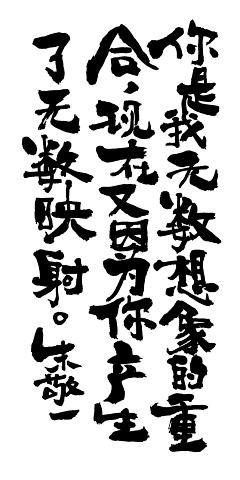 你是我无数想象的重
合，现在又因为你产生
了无数映射。朱敬一